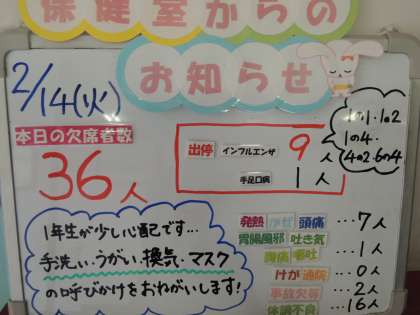 保健室からの
お知らせ
2/14(火)
本日の欠席者数
36人
出停 インフルエンザ 9人
手足口病 1人
1の1・1の2
1の4・
4の2・6の4
1年生が少し心配です…
手洗い・うがい・換気・マスク
の呼びかけをおねがいします!
発熱 かぜ 頭痛 …7人
胃腸風邪 吐き気
腹痛 嘔吐 …1人
けが 通院 …0人
事故欠等 …2人
体調不良 …16人